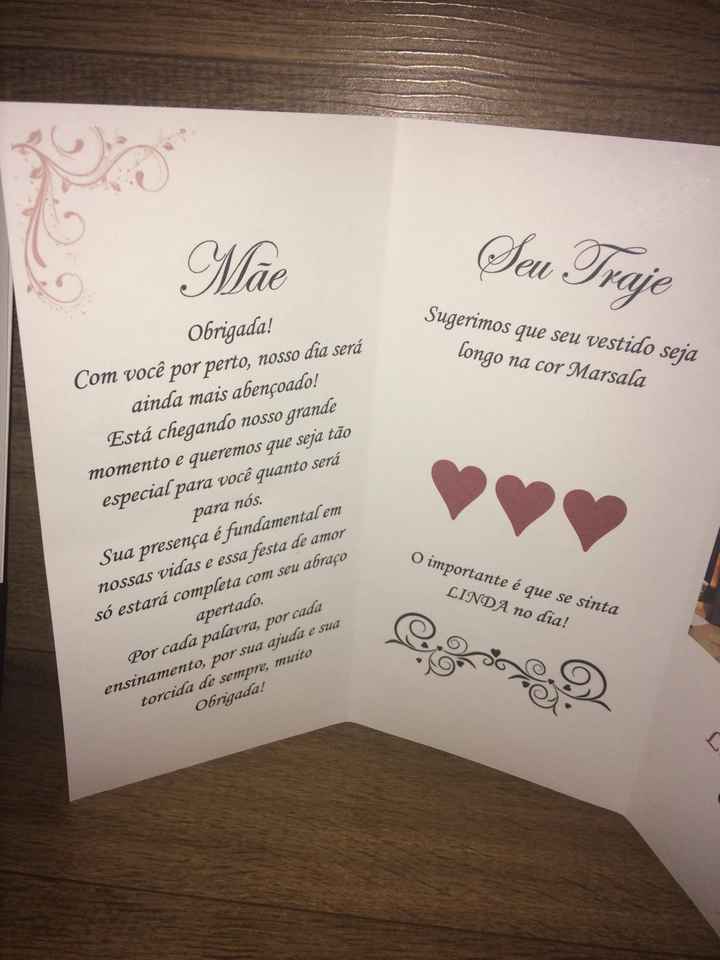 Mãe
Obrigada!
Com você por perto, nosso dia será
ainda mais abençoado!
Está chegando nosso grande
momento e queremos que seja tão
especial para você quanto será
para nós.
Sua presença é fundamental em
nossas vidas e essa festa de amor
só estará completa com seu abraço
apertado.
Por cada palavra, por cada
ensinamento, por sua ajuda e sua
torcida de sempre, muito
Obrigada!
Seu Traje
Sugerimos que seu vestido seja
longo na cor Marsala
O importante é que se sinta
LINDA no dia!